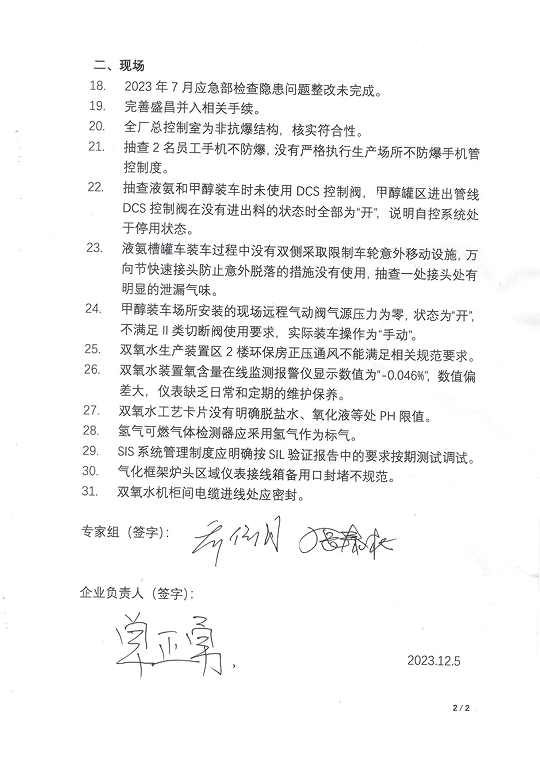 二、现场
18. 2023 年 7 月应急部检查隐患问题整改未完成。
19. 完善盛昌并入相关手续。
20. 全厂总控制室为非抗爆结构，核实符合性。
21. 抽查 2 名员工手机不防爆，没有严格执行生产场所不防爆手机管
控制度。
22. 抽查液氨和甲醇装车时未使用 DCS 控制阀，甲醇罐区进出管线
DCS 控制阀在没有进出料的状态时全部为“开”，说明自控系统处
于停用状态。
23. 液氨槽罐车装车过程中没有双侧采取限制车轮意外移动设施，万
向节快速接头防止意外脱落的措施没有使用，抽查一处接头处有
明显的泄漏气味。
24. 甲醇装车场所安装的现场远程气动阀气源压力为零，状态为“开”，
不满足 II 类切断阀使用要求，实际装车操作为“手动”。
25. 双氧水生产装置区 2 楼环保房正压通风不能满足相关规范要求。
26. 双氧水装置氧含量在线监测报警仪显示数值为“-0.046%”，数值偏
差大，仪表缺乏日常和定期的维护保养。
27. 双氧水工艺卡片没有明确脱盐水、氧化液等处 PH 限值。
28. 氢气可燃气体检测器应采用氢气作为标气。
29. SIS 系统管理制度应明确按 SIL 验证报告中的要求按期测试调试。
30. 气化框架炉头区域仪表接线箱备用口封堵不规范。
31. 双氧水机柜间电缆进线处应密封。
专家组（签字）：
企业负责人（签字）：
单正勇
2023.12.5
2 / 2